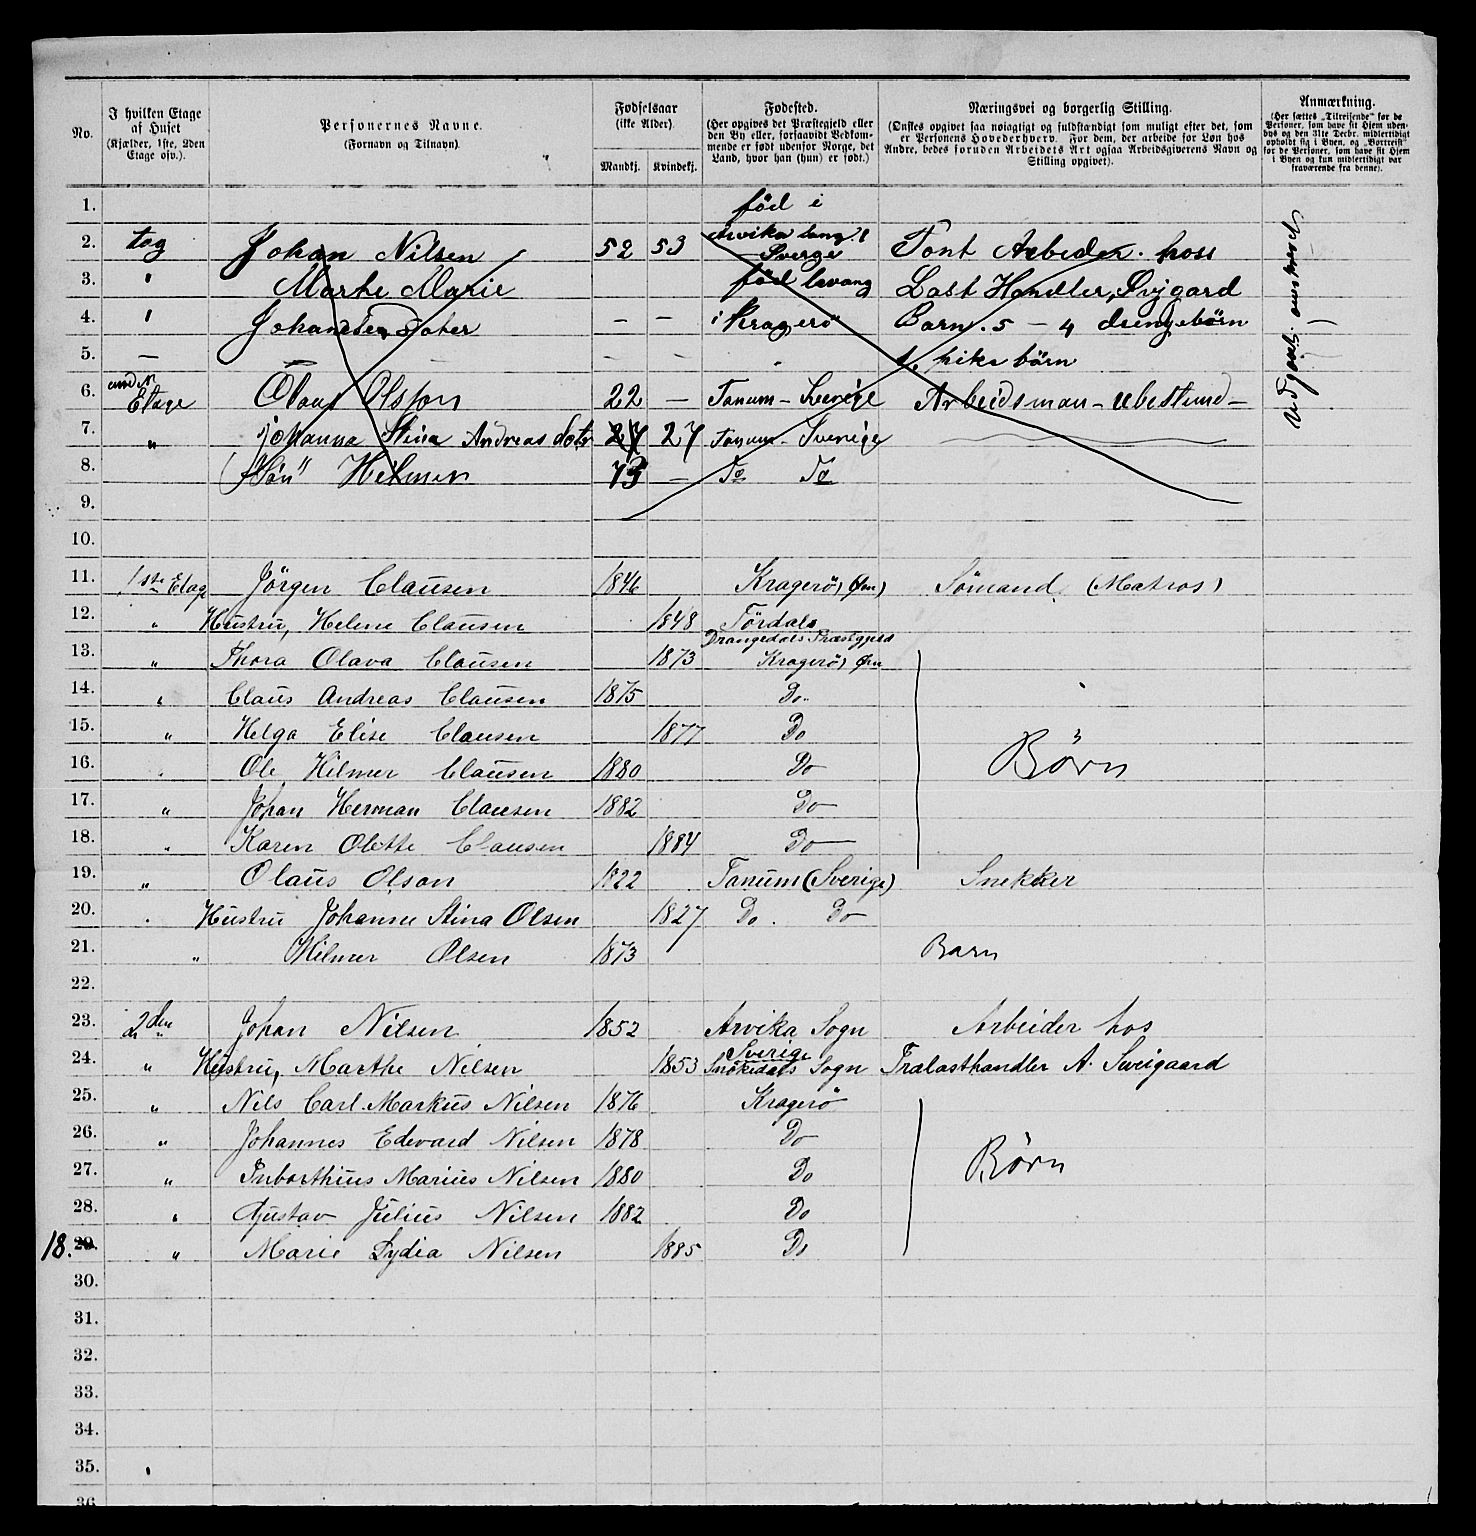 No.
I hvilken Etage af Huset (Kjælder, 1ste, 2den Etage osv.).
Personernes Navne.
(Fornavn og Tilnavn).
Fødselsaar
(ikke Alder).
Mandkj. Kvindekj.
Fødested.
(Her opgives det Præstegjeld eller den By eller, forsaavidt Vedkommende er født udenfor Norge, det Land, hvor han (hun) er født.)
Næringsvei og borgerlig Stilling.
(Ønskes opgivet saa nøiagtigt og fuldstændigt som muligt efter det, som er Personens Hovederhverv. For dem, der arbeide for Løn hos Andre, bedes foruden Arbeidets Art ogsaa Arbeidsgiverens Navn og Stilling opgivet).
Anmærkning.
(Her sættes „Tilreisende“ for de Personer, som have sit Hjem udenbys og den 31te Decbr. midlertidigt opholdt sig i Byen, og „Bortreist“ for de Personer, som have sit Hjem i Byen og kun midlertidigt var fraværende fra denne).
1. föd i
2. tog Johan Nilsen 52 53 Arvika Sverge Tont Arbeder. hoss
3. " Marhe Marie föd Last Handler, Svigard
4. " Johannes Doter — — i Kragerö Barn. 5 — 4 drengebörn
5. — — — " 1. pike börn
6. Etage Olaus Olsson 22 — Tanum — Sverige Arbeidsman — ubestund —
7. " johanna Stina Andreas dotr 27 27 Tanum — Sverige
8. "Sön" Hilmer 73 — Do Do
9.
10.
11. 1ste Etage Jörgen Clausen 1846 Kragerö, Øen) Sömand (Matros)
12. " Hustru, Helene Clausen 1848 Tördals Drangedals Præstgjeld
13. " Thora Olava Clausen 1873 Kragerö, Øen
14. " Claus Andreas Clausen 1875 Do
15. " Helga Elise Clausen 1877 Do
16. " Ole Hilmer Clausen 1880 Do Börn
17. " Johan Herman Clausen 1882 Do
18. " Karen Olette Clausen 1884 Do
19. " Olaus Olson 1822 Tanum (Sverige) Snekker
20. " Hustru Johanne Stina Olsen 1827 Do. Do
21. " Hilmer Olsen 1873 Barn
22.
23. 2den Johan Nilsen 1852 Arvika Sogn Sverige Arbeider hos
24. " Hustru, Marthe Nilsen 1853 Sogn Trælasthandler A. Sweigaard
25. " Nils Carl Markus Nilsen 1876 Kragerö
26. " Johannes Edevard Nilsen 1878 Do
27. " Marius Nilsen 1880 Do Börn
28. " Gustav Julius Nilsen 1882 Do
18. 29. " Marie Lydia Nilsen 1885 Do
30.
31.
32.
33.
34.
35.
36